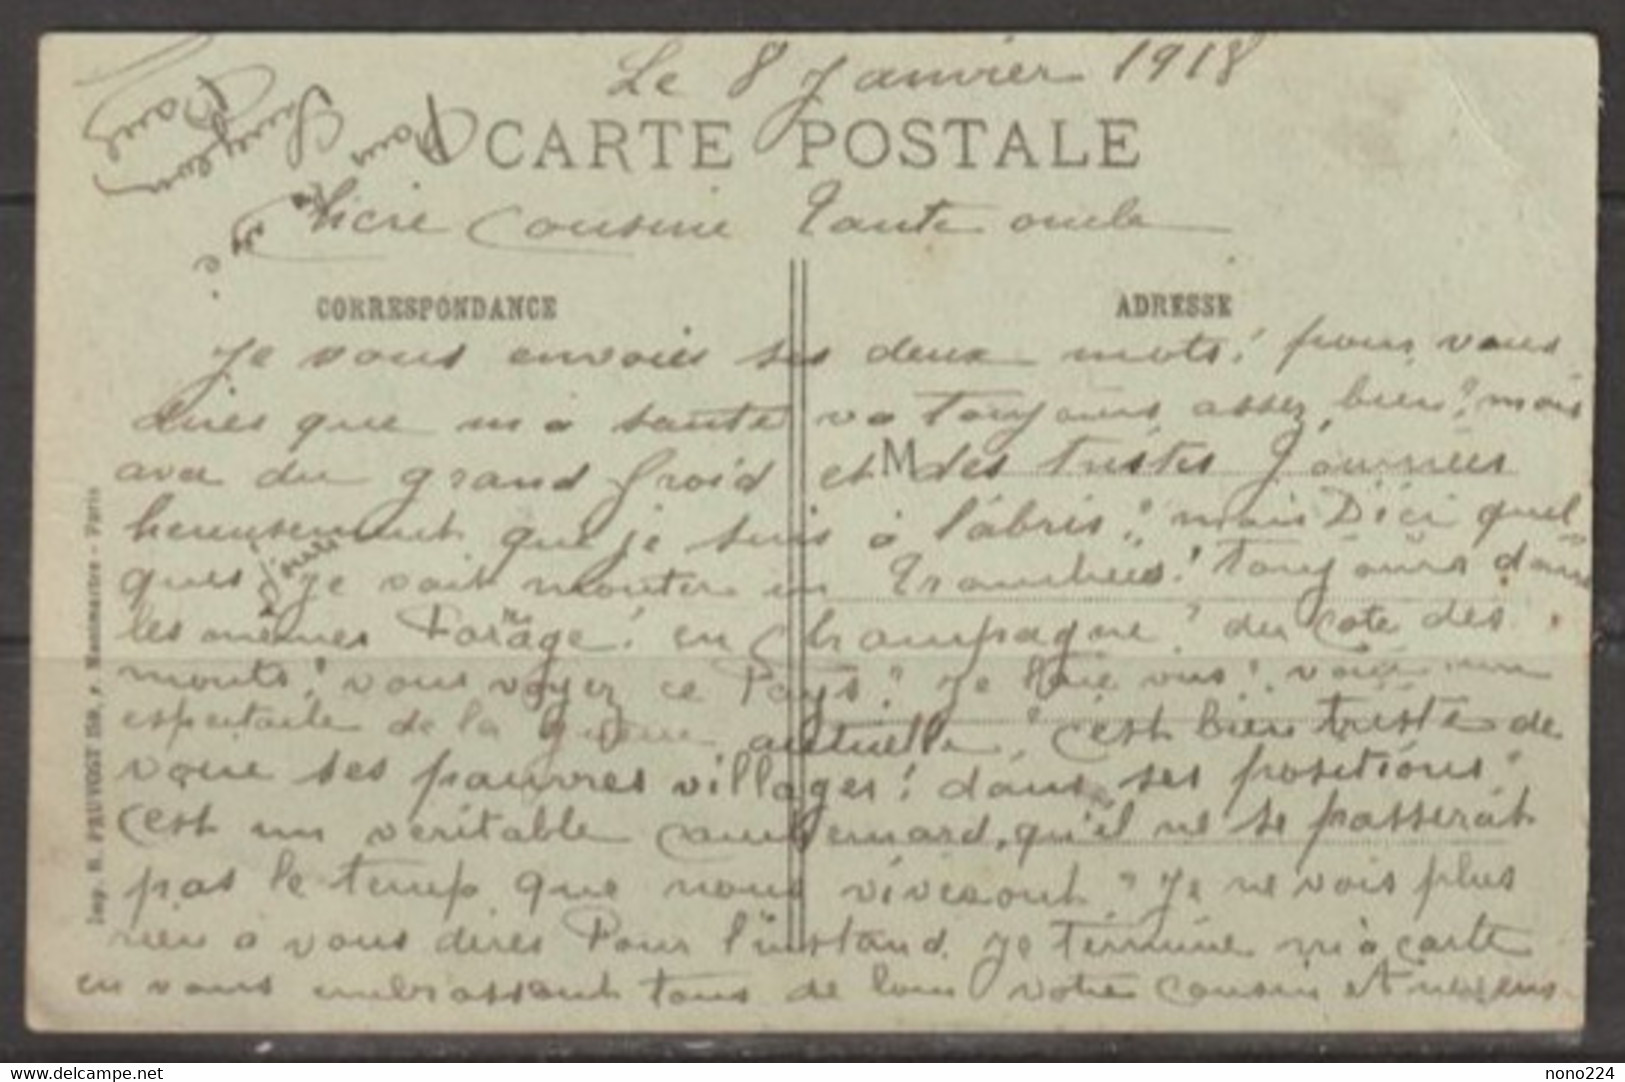 Le 8 Janvier 1918
CARTE POSTALE
Chere Cousine Tante oncle
CORRESPONDANCE
ADRESSE
Je vous envoies ses deux mots! pour vous
dires que m'a santé va toujours assez bien? mais
avec du grand froid et M des tristes Journées
heureusement que je suis à l'abris? mais Dici quel
ques jours je vait monter en Tranchées! Toujours dans
les mêmes Parage! en Champagne? du Cote des
monts! vous voyez ce Pays? Je
espectacle de la guerre actuelle? c'est bien triste de
voire ses pauvres villages! dans ses positions?
c'est un veritable, qu'il ne se passerat
pas le temp que nous vivesont? Je ne vois plus
rien a vous dires Pour l'instand. Je termine m'a carte
en vous embrassant tous de loin votre cousin et
Imp. H. PRUVOST, r. Montmartre - Paris
www.delcampe.net
nono224